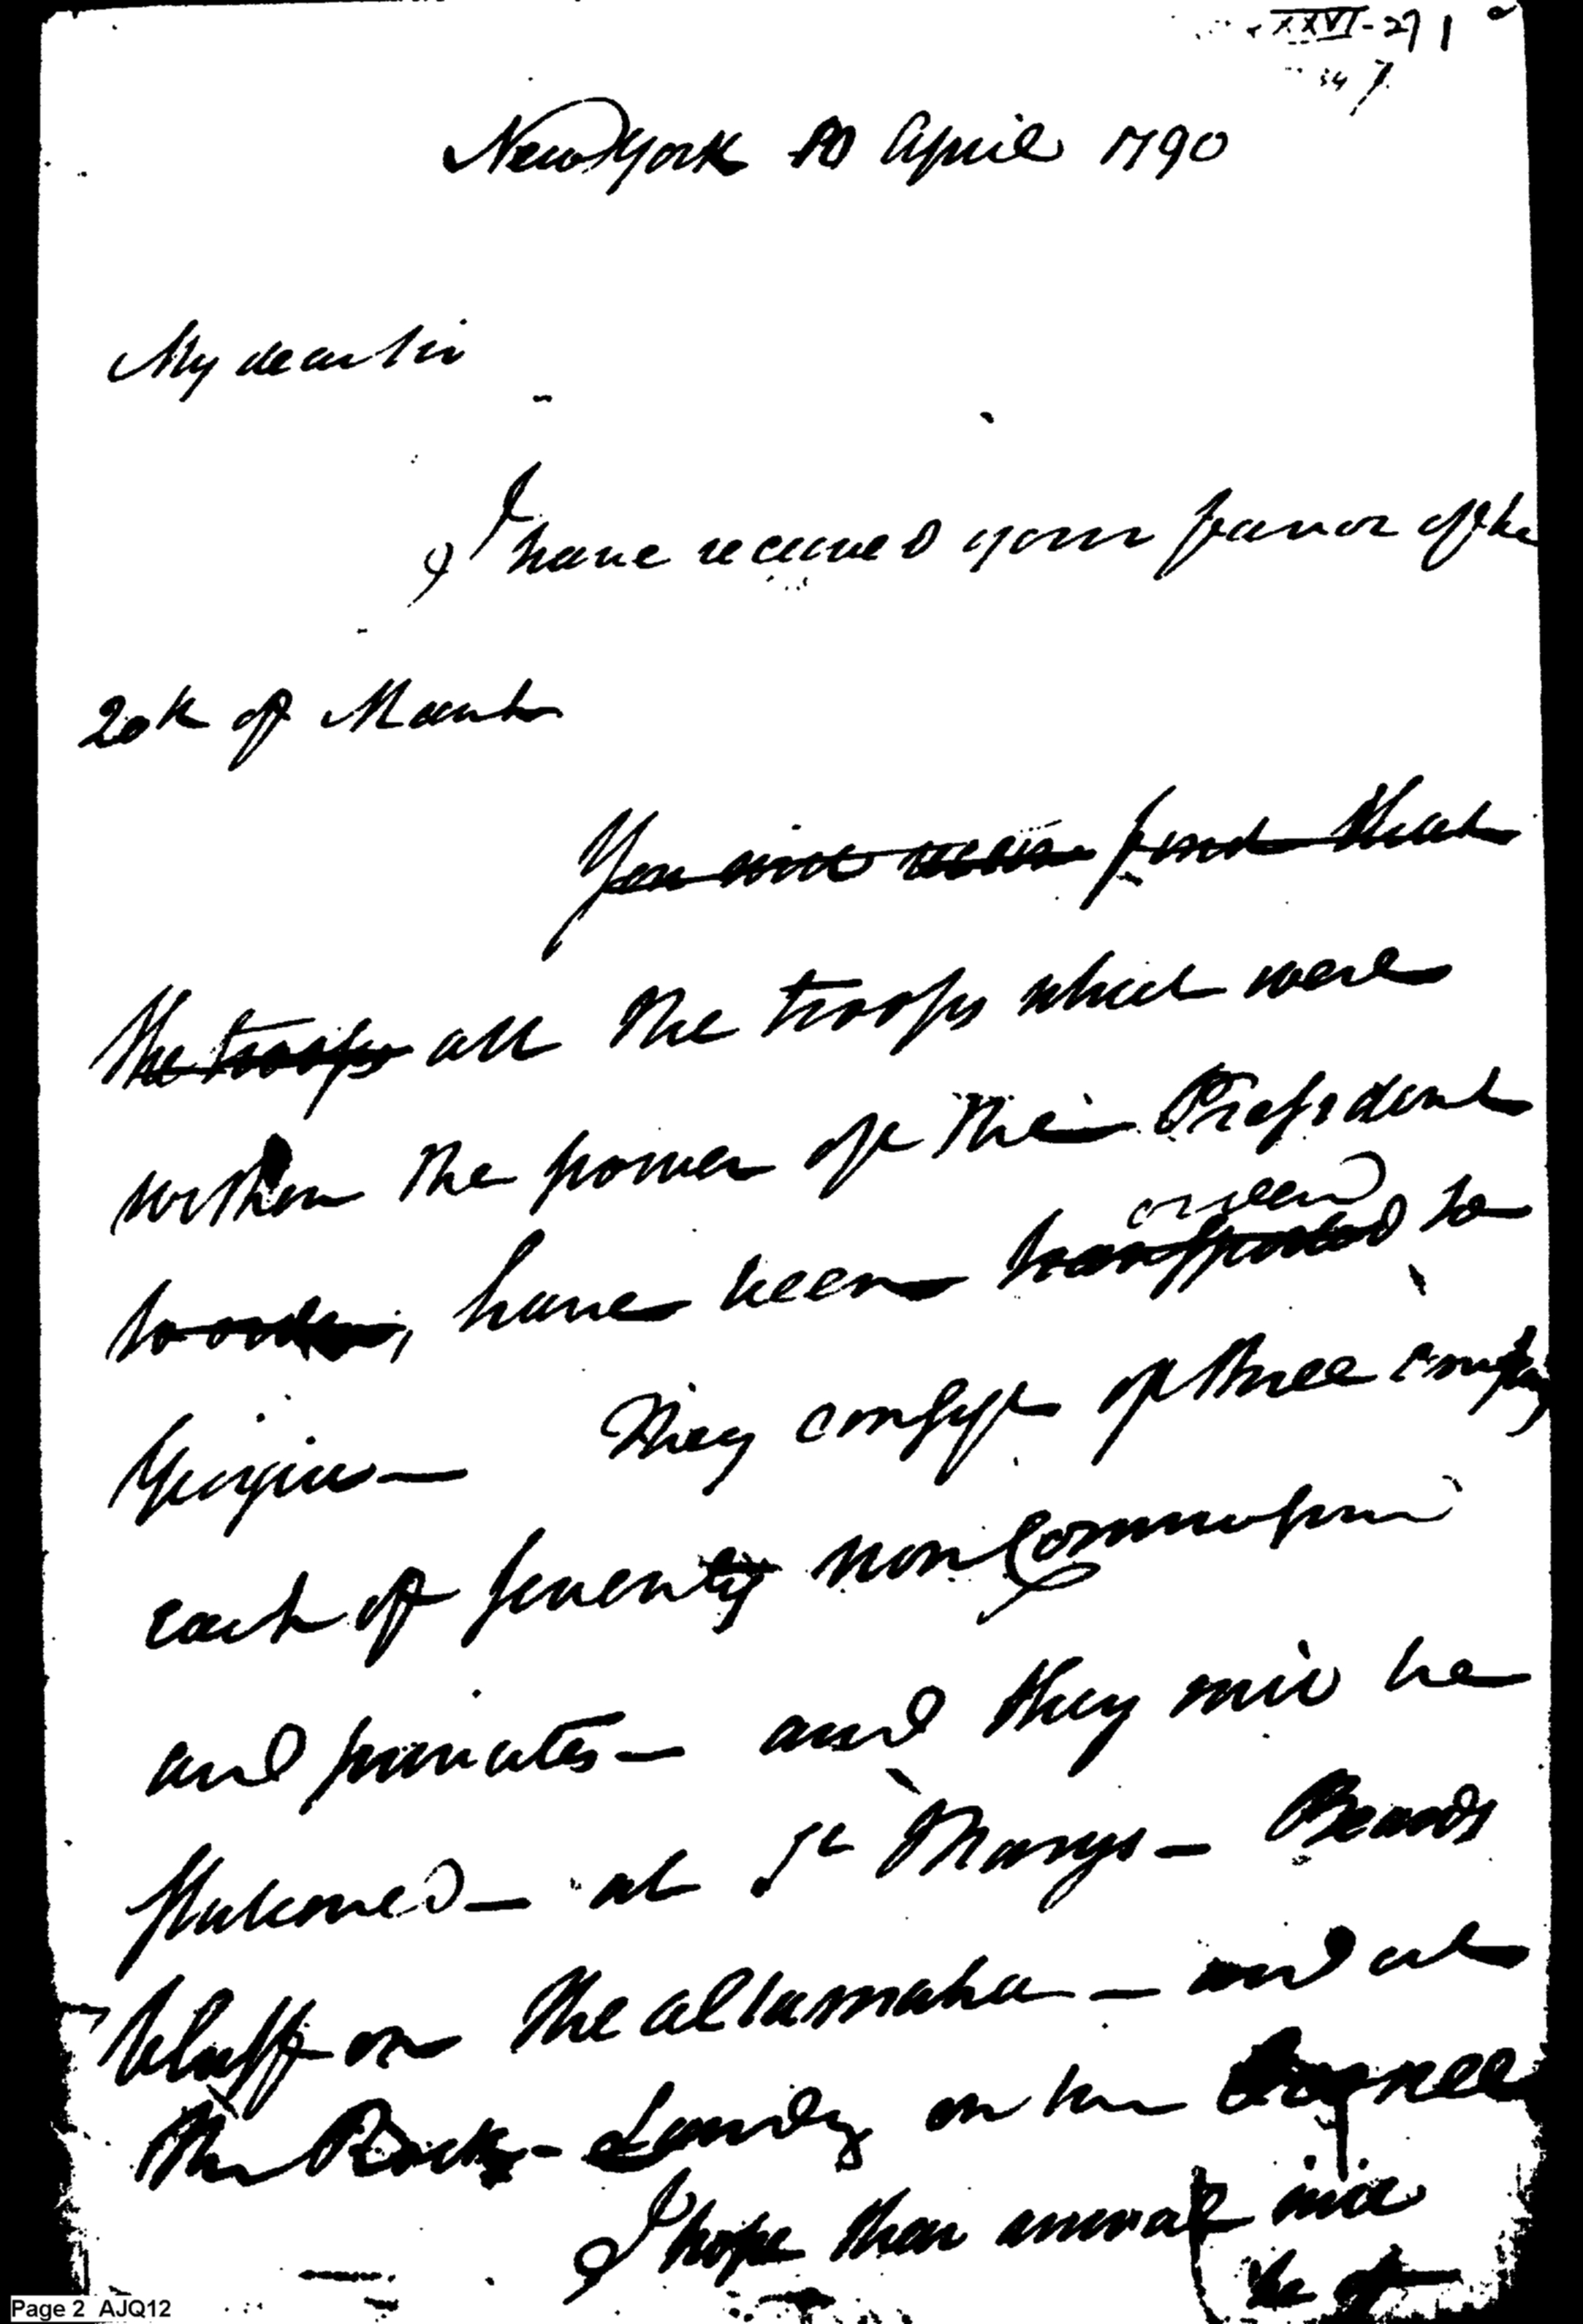 XXVI-271
347
New York 10 April 1790
My dear Sir
I have received your favor of the
20th of March
You will find that
the troops all the troops which were
within the power of the President
ordered
to order, have been transported to
Georgia — They consist of three company
each of seventy non Commission
and privates — and they will be
stationed — at St Marys — Beards
bluff on the altamaha — and at
the Rock-Landing on the Oconee
I hope their arrival will
be of
Page 2 AJQ12